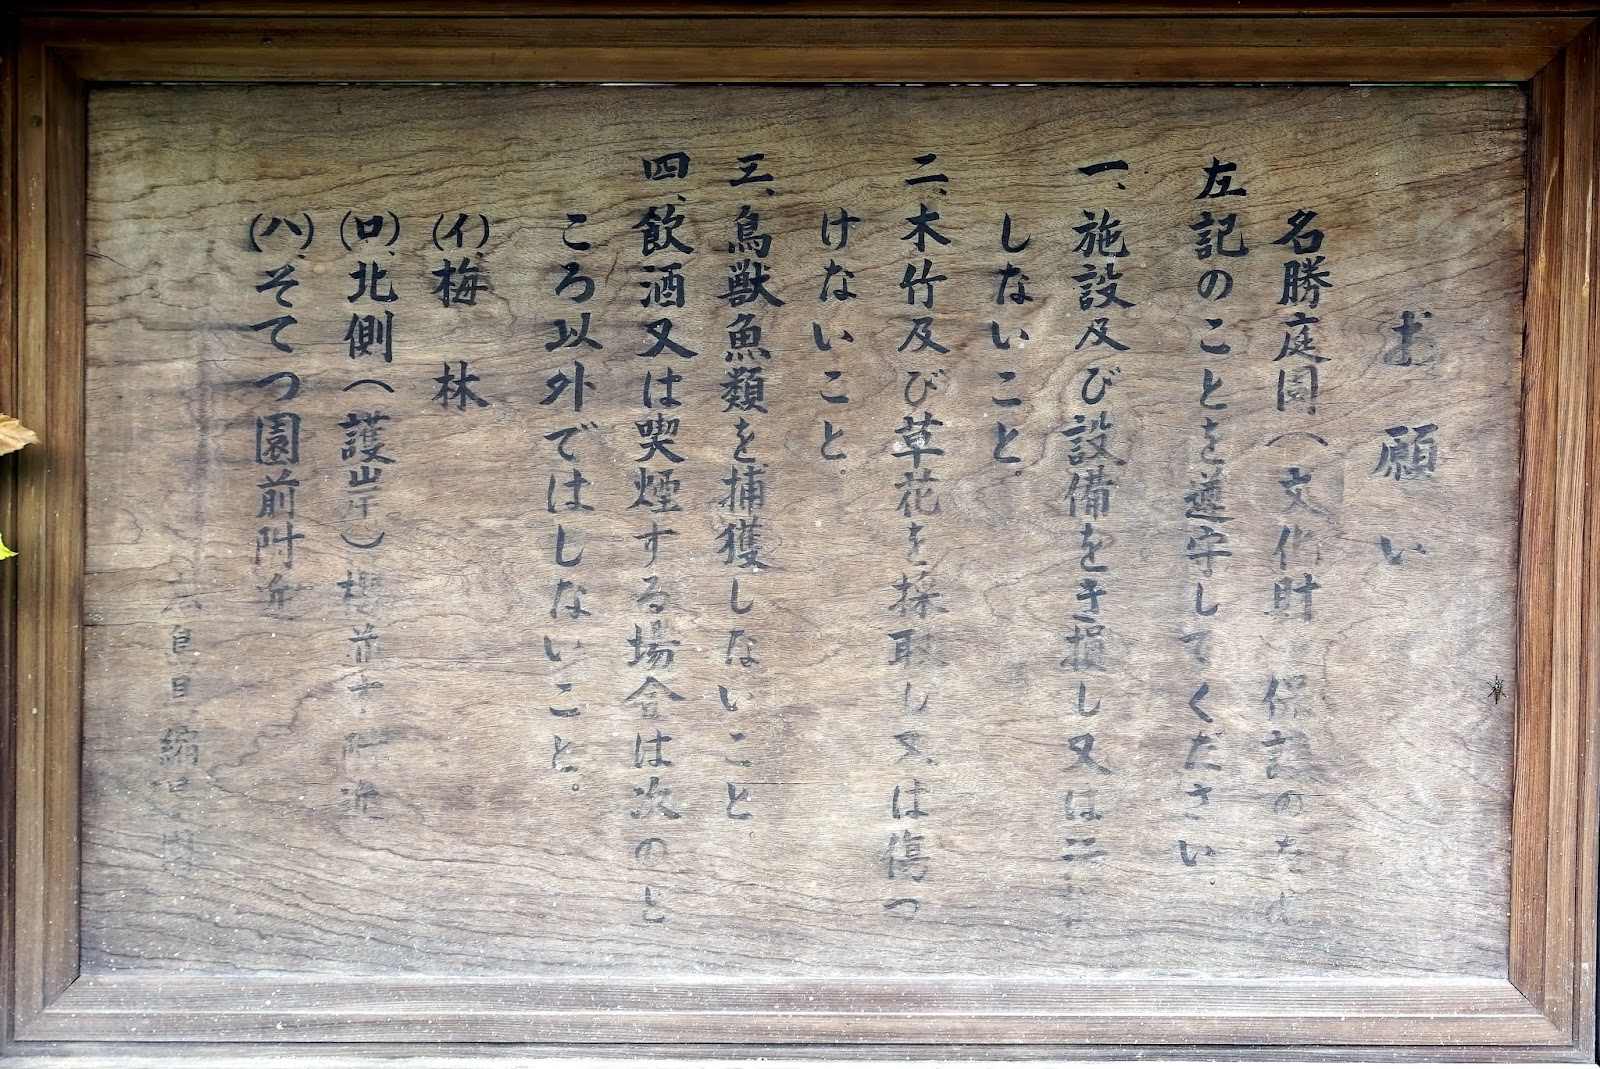 お願い
名勝庭園(文化財)保護のため
左記のことを遵守してください
一、施設及び設備をき損し又は
しないこと。
二、木竹及び草花を採取し又は傷つ
けないこと。
三、鳥獣魚類を捕獲しないこと。
四、飲酒又は喫煙する場合は次のと
ころ以外ではしないこと。
(イ)、梅 林
(ロ)、北側(護岸)桜並木附近
(ハ)、そてつ園前附近